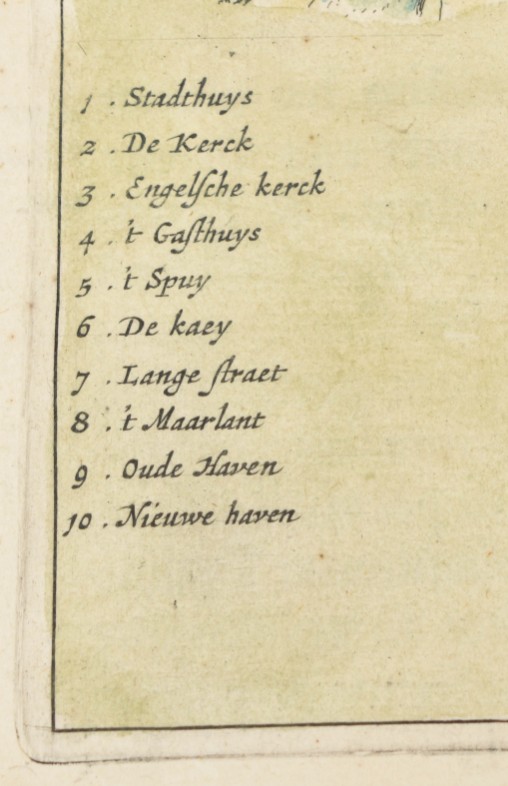 1 . Stadthuys
2 . De Kerck
3 . Engelsche kerck
4 . 't Gasthuys
5 . 't Spuy
6 . De kaey
7 . Lange straet
8 . 't Maarlant
9 . Oude Haven
10 . Nieuwe haven